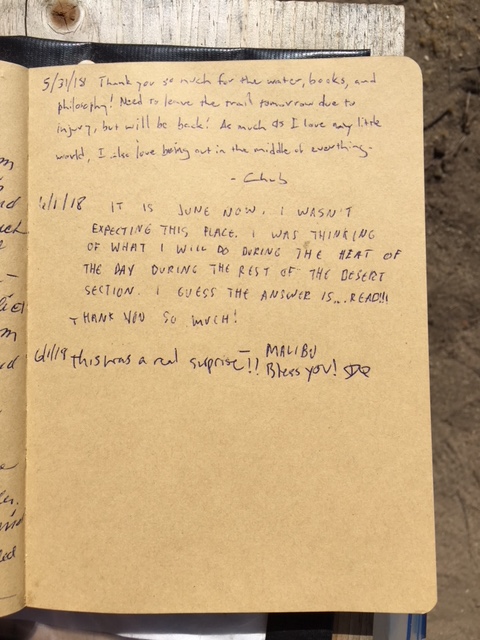 5/31/18 Thank you so much for the water, books, and
philosophy! Need to leave the trail tomorrow due to
injury, but will be back! As much as I love my little
world, I also love being out in the middle of everything.
- Chub
6/1/18 IT IS JUNE NOW. I WASN'T
EXPECTING THIS PLACE. I WAS THINKING
OF WHAT I WILL DO DURING THE HEAT OF
THE DAY DURING THE REST OF THE DESERT
SECTION. I GUESS THE ANSWER IS... READ!!!
THANK YOU SO MUCH!
- MALIBU
6/1/18 this was a real surprise!! Bless you!